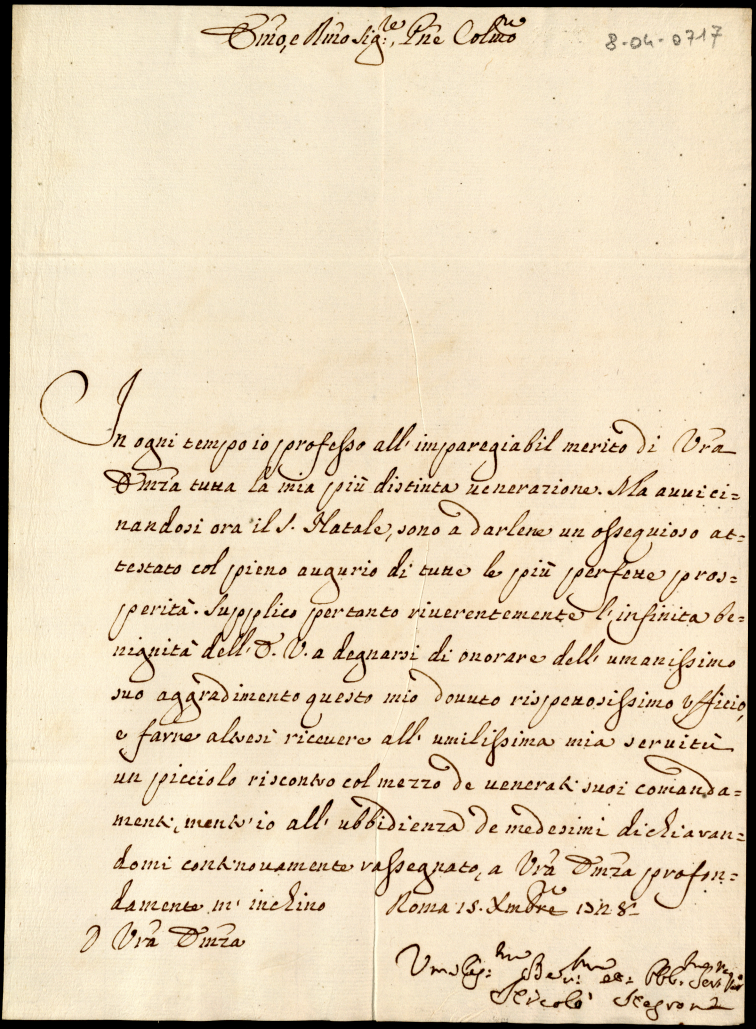 Em̃o, e Rm̃o Sig:re, Pne Colmo
8-04-0717
In ogni tempo io professo all' impareggiabil merito di Vrã
Em̃za tutta la mia più distinta venerazione. Ma avvici=
nandosi ora il S. Natale, sono a darlene un ossequioso at=
testato col pieno augurio di tutte le più perfette pros=
perità. Supplico pertanto riverentemente l'infinita be=
nignità dell'E. V. a degnarsi di onorare dell' umanissimo
suo aggradimento questo mio dovuto rispettosissimo ufficio,
e farne altresì ricevere all' umilissima mia servitù
un picciolo riscontro col mezzo de venerati suoi comanda=
menti, mentr'io all' ubbidienza de medesimi dichiaran=
domi continovamente rassegnato, a Vrã Em̃za profon=
damente m' inchino
Roma 15. Xmbre
D Vrã Em̃za
Umiliss:mo
Nicolò Negroni